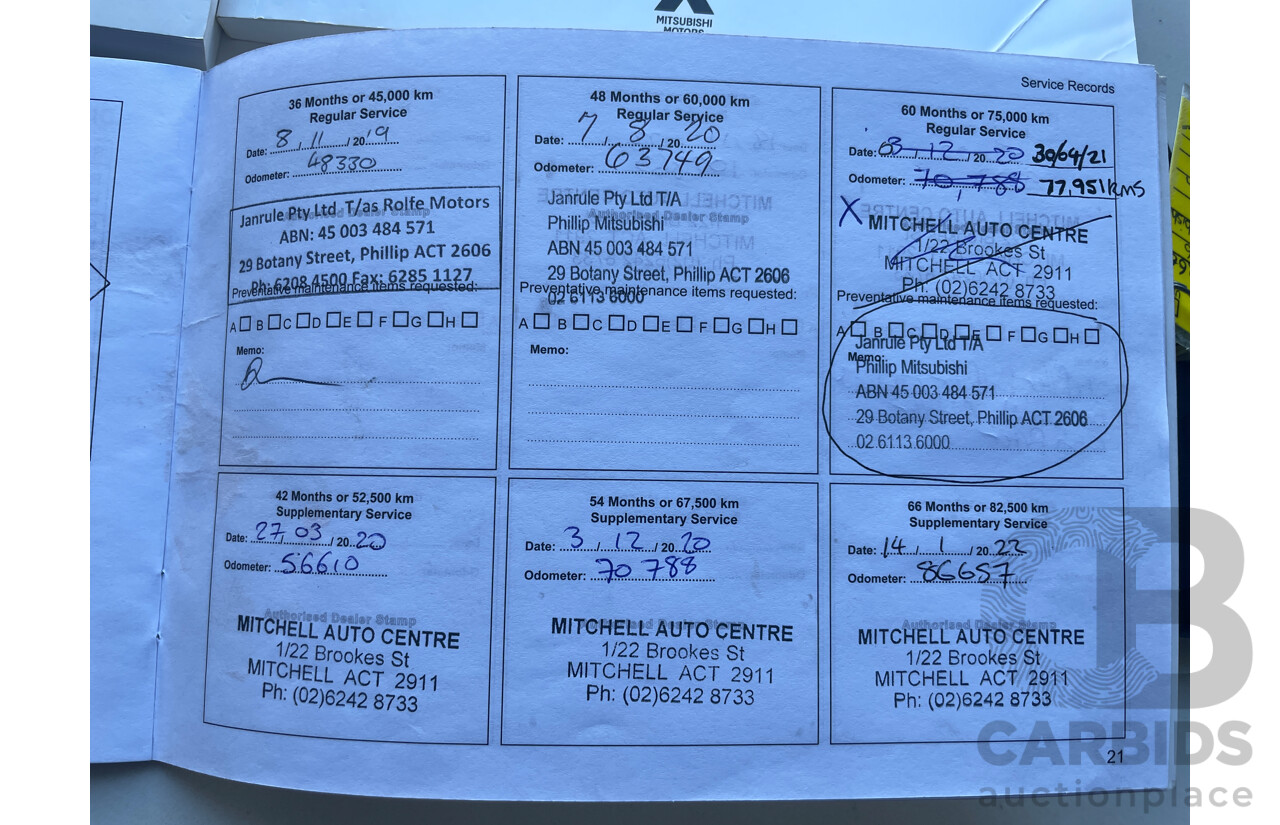 MITSUBISHI
MOTORS
Service Records
36 Months or 45,000 km
Regular Service
Date: 8 / 11 / 2019
Odometer: 48330
Authorised Dealer Stamp
Janrule Pty Ltd T/as Rolfe Motors
ABN: 45 003 484 571
29 Botany Street, Phillip ACT 2606
Ph: 6208 4500 Fax: 6285 1127
Preventative maintenance items requested:
A B C D E F G H
Memo:
48 Months or 60,000 km
Regular Service
Date: 7 / 8 / 2020
Odometer: 63749
Janrule Pty Ltd T/A
Authorised Dealer Stamp
Phillip Mitsubishi
ABN 45 003 484 571
29 Botany Street, Phillip ACT 2606
Preventative maintenance items requested:
02 6113 6000
A B C D E F G H
Memo:
60 Months or 75,000 km
Regular Service
Date: 03 / 12 / 2020 30/04/21
Odometer: 70 788 77,951kms
X
MITCHELL AUTO CENTRE
1/22 Brookes St
MITCHELL ACT 2911
Ph: (02)6242 8733
Preventative maintenance items requested:
A B C D E F G H
Janrule Pty Ltd T/A
Memo:
Phillip Mitsubishi
ABN 45 003 484 571
29 Botany Street, Phillip ACT 2606
02 6113 6000
42 Months or 52,500 km
Supplementary Service
Date: 27/03/2020
Odometer: 56610
Authorised Dealer Stamp
MITCHELL AUTO CENTRE
1/22 Brookes St
MITCHELL ACT 2911
Ph: (02)6242 8733
54 Months or 67,500 km
Supplementary Service
Date: 3 / 12 / 2020
Odometer: 70 788
Authorised Dealer Stamp
MITCHELL AUTO CENTRE
1/22 Brookes St
MITCHELL ACT 2911
Ph: (02)6242 8733
66 Months or 82,500 km
Supplementary Service
Date: 14 / 1 / 2022
Odometer: 86657
Authorised Dealer Stamp
MITCHELL AUTO CENTRE
1/22 Brookes St
MITCHELL ACT 2911
Ph: (02)6242 8733
21
CARBIDS
auctionplace